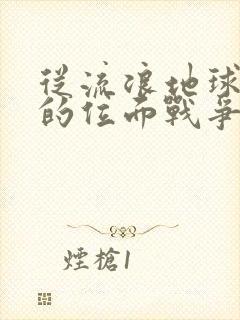 從流浪地球
的位面戰爭
煙槍1